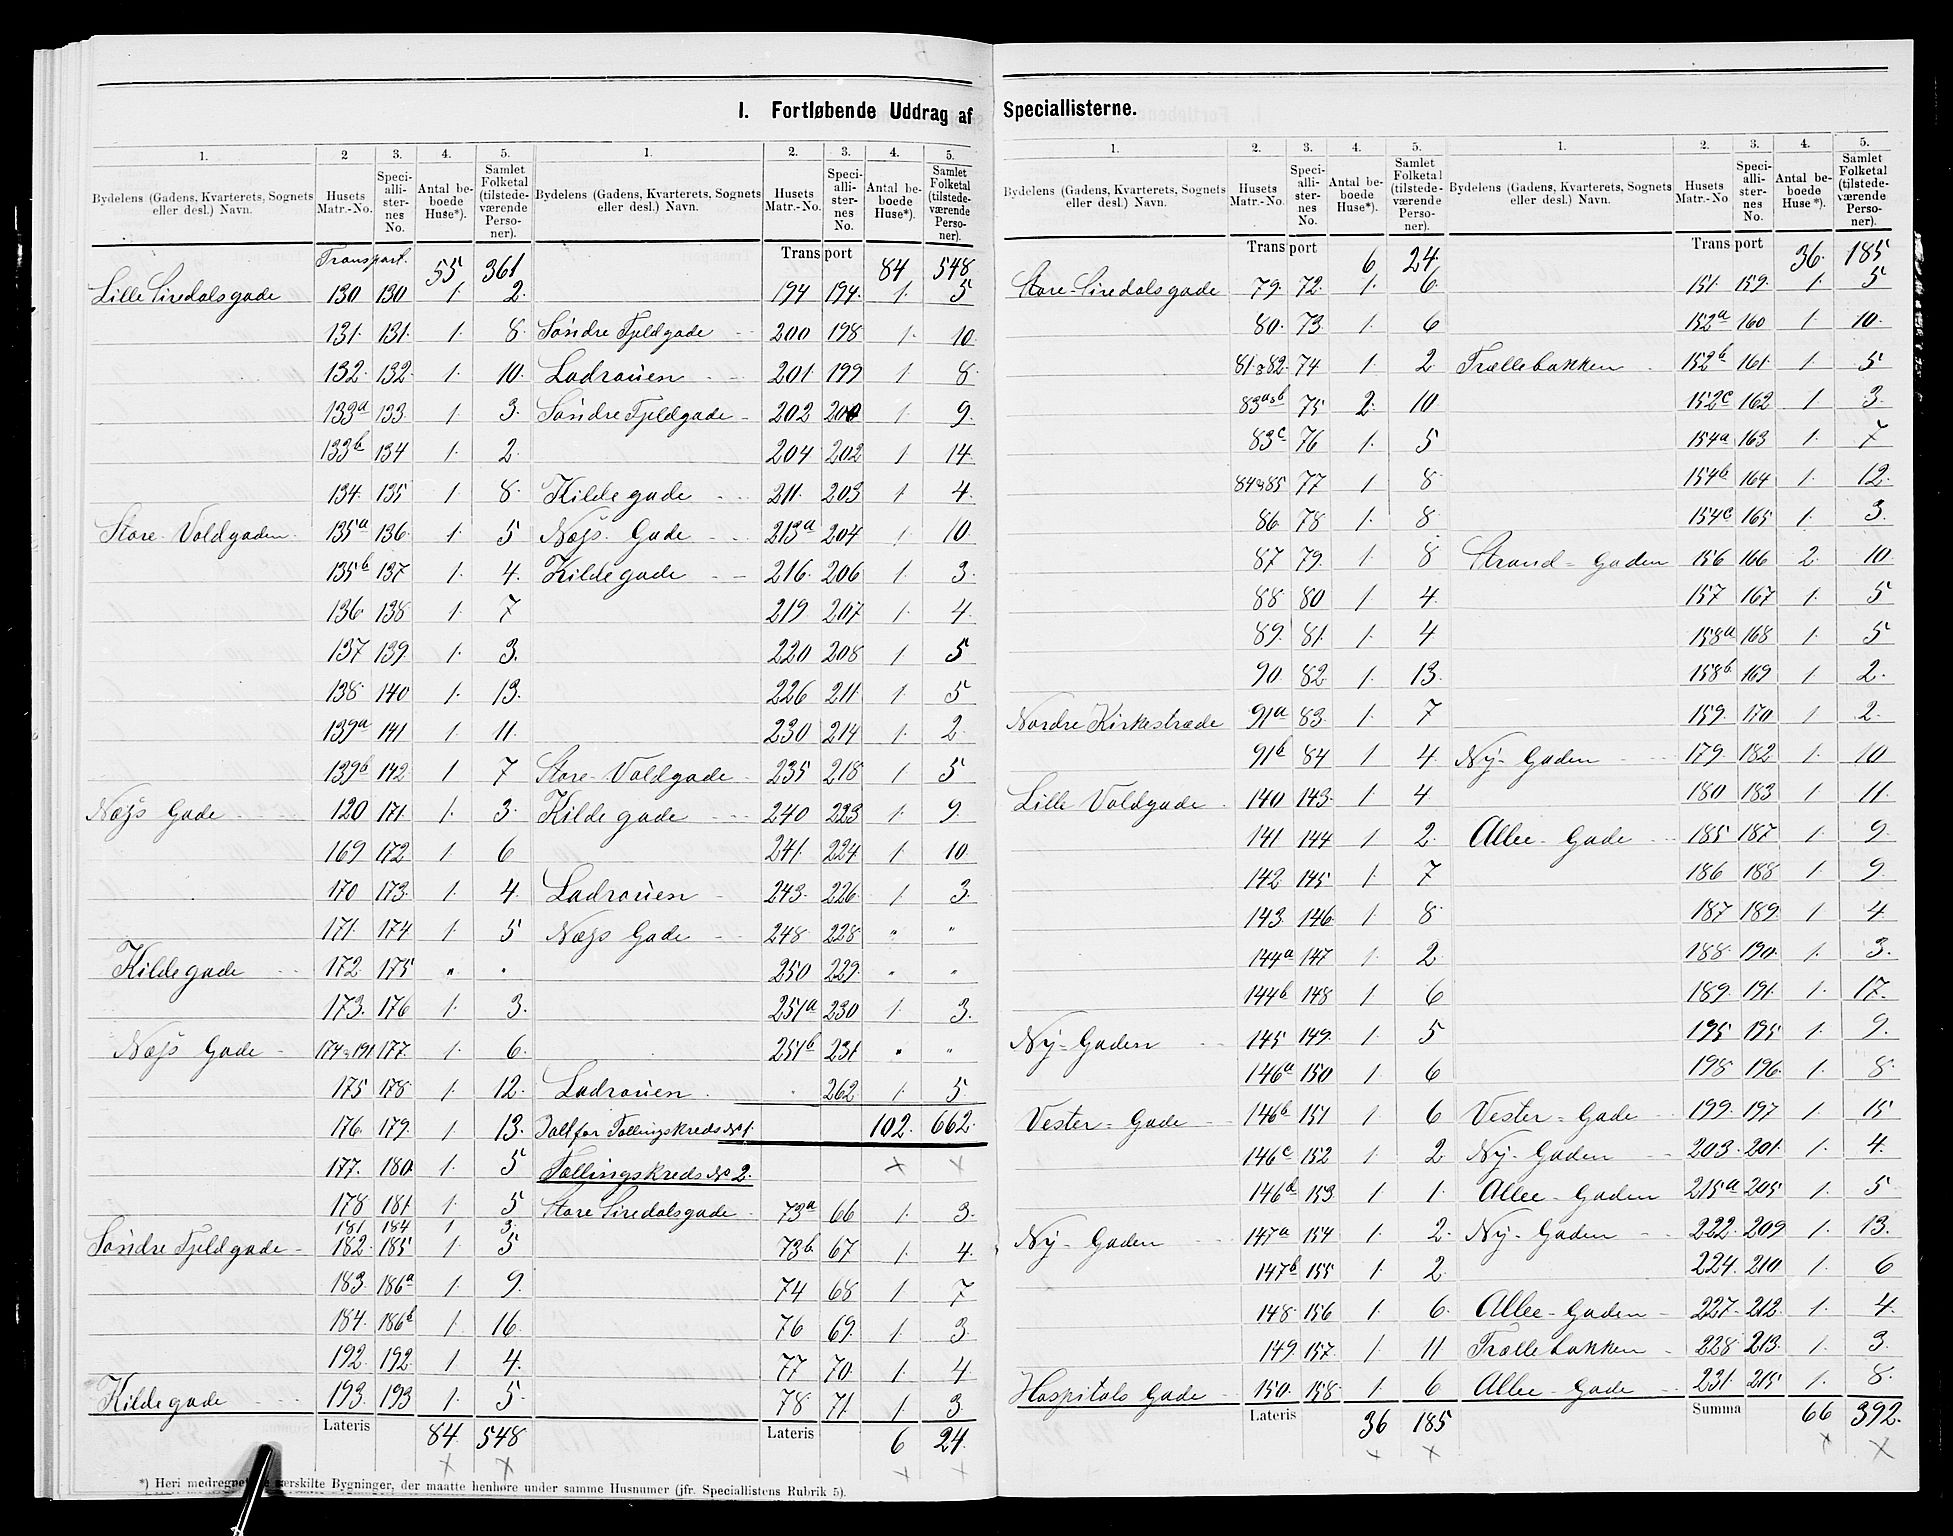 I. Fortløbende Uddrag af Speciallisterne.
1. 2 3. 4. 5. 1. 2. 3. 4. 5.
Bydelens (Gadens, Kvarterets, Sognets eller desl.) Navn. Husets Matr.-No. Speciallisternes No. Antal beboede Huse*). Samlet Folketal (tilstedeværende Personer). Bydelens (Gadens, Kvarterets, Sognets eller desl.) Navn. Husets Matr.-No. Speciallisternes No. Antal beboede Huse*). Samlet Folketal (tilstedeværende Personer).
Transport. 55 361 Transport 84 548
Lille Siredalsgade 130 130 1. 2. 194 194. 1. 5
131. 131. 1. 8. Søndre Fjeldgade 200 198 1. 10
132. 132. 1. 10. Ladrouen 201. 199 1 8.
133a 133. 1 3. Søndre Fjeldgade 202 200 1 9.
133b 134 1. 2. 204 202 1 14.
134. 135 1. 8. Kildegade 211. 203 1 4.
Store Voldgaden 135a 136. 1. 5 Næss Gade 213a 204 1. 10.
135b 137 1. 4. Kildegade 216. 206 1. 3.
136. 138 1. 7 219 207 1 4.
137 139 1. 3. 220 208 1 5
138. 140 1. 13. 226 211. 1 5
139a 141 1 11. 230 214 1. 2.
139b 142 1 7 Store Voldgade 235 218 1 5
Næss Gade 120 171. 1. 3. Kildegade 240 223 1. 9.
169 172 1 6 241. 224 1 10.
170 173. 1. 4. Ladrouen 243. 226. 1 3.
171. 174 1. 5 Næss Gade 248 228 " "
Kildegade 172. 175 " " 250 229. " "
173. 176 1. 3. 251a 230 1 3.
Næss Gade 174&191 177. 1. 6. 251b 231. " "
175 178 1. 12. Ladrouen 262 1. 5
176. 179. 1. 13. Ialt for Tællingskreds No 1. 102. 662.
177. 180 1. 5 Tællingskreds No 2.
178 181. 1. 5 Store Siredalsgade 73a 66 1. 3.
181 184 1 3.
Søndre Fjeldgade 182. 185 1. 5 73b. 67 1 4.
183. 186a 1. 9. 74 68 1 7
184. 186b 1. 16. 76 69. 1. 3
192. 192. 1 4. 77 70 1. 4
Kildegade 193. 193 1. 5. 78 71. 1 3
Lateris 84. 548 Lateris 6 24.
*) Heri medregnet særskilte Bygninger, der maatte henhøre under samme Husnumer (jfr. Speciallistens Rubrik 5).
1. 2. 3. 4. 5. 1. 2. 3. 4. 5.
Bydelens (Gadens, Kvarterets, Sognets eller desl.) Navn. Husets Matr.-No. Speciallisternes No. Antal beboede Huse*). Samlet Folketal (tilstedeværende Personer). Bydelens (Gadens, Kvarterets, Sognets eller desl.) Navn. Husets Matr.-No Speciallisternes No. Antal beboede Huse*). Samlet Folketal (tilstedeværende Personer).
Transport 6 24. Transport 36. 185
Store Siredalsgade 79. 72. 1. 6. 151. 159. 1. 5
80. 73. 1. 6 152a 160 1 10.
81&82 74 1. 2 Trællebakken 152b 161. 1 5
83a&b 75 2. 10 152c 162 1 3.
83c 76 1. 5 154a 163 1. 7
84&85 77 1 8 154b 164 1. 12.
86. 78 1. 8 154c 165 1. 3.
87 79. 1. 8 Strand-Gaden 156 166 2. 10.
88 80 1 4. 157 167 1. 5
89. 81. 1. 4 158a 168 1. 5
90. 82. 1. 13. 158b. 169 1 2.
Nordre Kirkestræde 91a 83. 1. 7 159. 170 1 2.
91b 84 1 4. Ny-Gaden 179. 182 1. 10
Lille Voldgade 140 143. 1 4. 180 183 1 11.
141 144 1 2. Allee-Gade 185 187 1. 9
142 145 1. 7 186 188 1 9.
143. 146. 1. 8 187 189. 1 4
144a 147 1 2. 188. 190. 1. 3.
144b 148 1. 6 189. 191. 1. 17.
Ny-Gaden 145 149. 1. 5 195 195 1. 9.
146a 150 1. 6 198 196. 1. 8.
Vester-Gade 146b 151 1 6 Vester-Gade 199. 197 1. 15
146c 152 1. 2 Ny-Gaden 203. 201. 1. 4.
146d 153 1 1. Allee-Gaden 215a 205 1. 5
Ny-Gaden 147a 154 1. 2. Ny-Gaden 222. 209 1. 13.
147b 155 1. 2. 224. 210 1. 6
148. 156 1. 6. Allee-Gaden 227. 212. 1. 4.
149. 157. 1. 11. Trællebakken 228 213. 1. 3.
Hospitals Gade 150. 158. 1. 6 Allee-Gade 231. 215 1. 8.
Lateris 36 185 Summa 66 392.